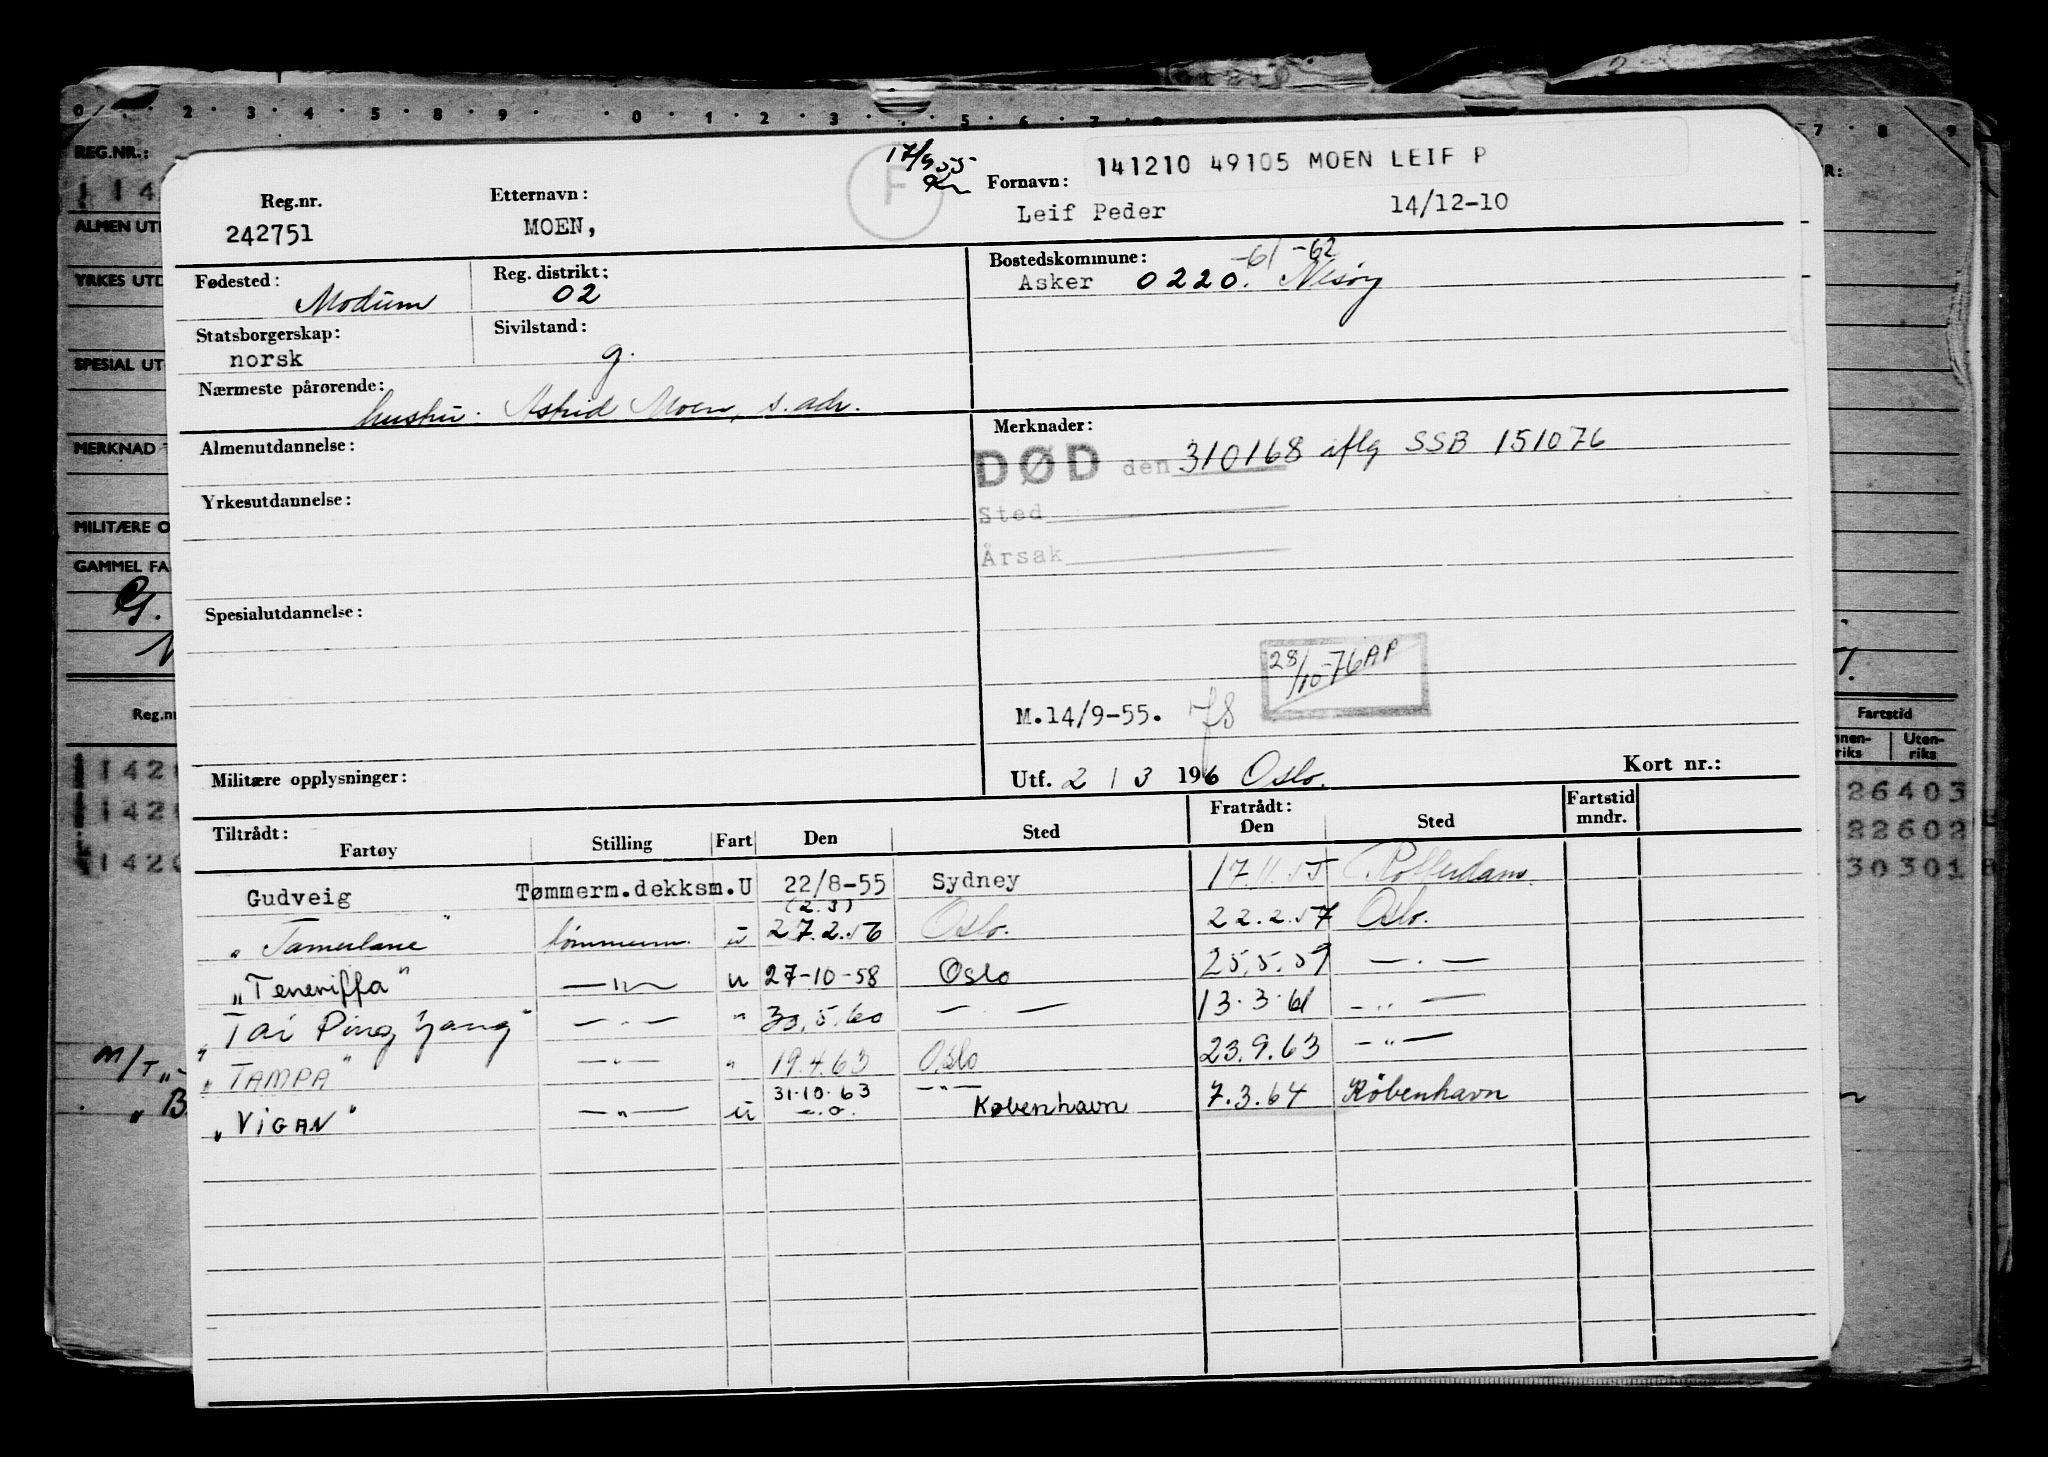 REG.NR.:
17/9 55
141210 49105 MOEN LEIF P
Reg.nr. Etternavn: F Fornavn:
242751 MOEN, Leif Peder 14/12-10
Fødested: Reg. distrikt: Bostedskommune: -61 -62
Modum 02 Asker 0220. Nesøy
Statsborgerskap: Sivilstand:
norsk g.
Nærmeste pårørende:
hustru. Astrid Moen, s. adr.
Almenutdannelse: Merknader:
DØD den 310168 iflg SSB 151076
Yrkesutdannelse: Sted
Årsak
Spesialutdannelse:
28/10-76 AP
M.14/9-55. 78
Militære opplysninger: Utf. 2 / 3 1956 Oslo. Kort nr.:
Tiltrådt: Fratrådt: Fartstid
Fartøy Stilling Fart Den Sted Den Sted mndr.
Gudveig Tømmerm.dekksm. U 22/8-55 Sydney 17.11.55 Rotterdam.
(2.3)
"Tamerlane" tømmerm. u 27.2.56 Oslo. 22.2.57 Oslo.
"Teneriffa" —"— u 27-10-58 Oslo 25.5.59 — . —
"Tai Ping Yang" — . — " 30.5.60 — . — 13.3.61 — " —
"TAMPA" — " — " 19.4.63 Oslo 23.9.63 — " —
31.10.63 — " —
"VIGAN" — " — u København 7.3.64 København
ALMEN UT
YRKES UTD
SPESIAL UT
MERKNAD
MILITÆRE O
GAMMEL FA
Reg.nr
M/T
Fartstid
Uten-
riks
26403
22602
30301